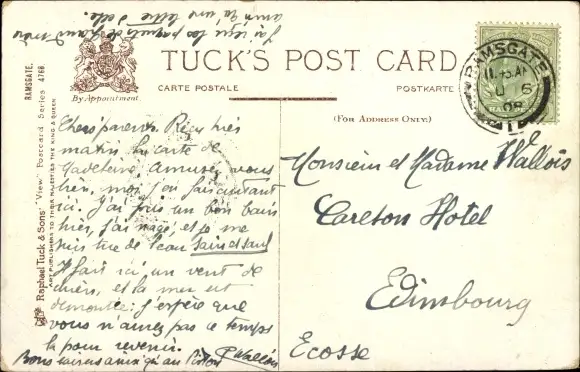 TUCK'S POST CARD
CARTE POSTALE
POSTKARTE
By Appointment.
(FOR ADDRESS ONLY.)
RAMSGATE
11.45 AM
6
08
RAMSGATE.
Raphael Tuck & Sons' "View" Postcard Series 4766.
ART PUBLISHERS TO THEIR MAJESTIES THE KING & QUEEN
j'ai reçu les paquets de grand mère
ainsi qu'une lettre d'elle.
Chers parents. Reçu hier
matin la carte de
Madeleine amusez vous
bien, moi j'en fais autant
ici. J'ai pris un bon bain
hier, j'ai nagé, et je me
suis tiré de l'eau sain et sauf
Il fait ici un vent de
chien, et la mer est
démontée; j'espère que
vous n'aurez pas ce temps
là pour revenir.
Bons baisers ainsi qu'au
P Wallois
Monsieur et Madame Wallois
Carlton Hotel
Edimbourg
Ecosse